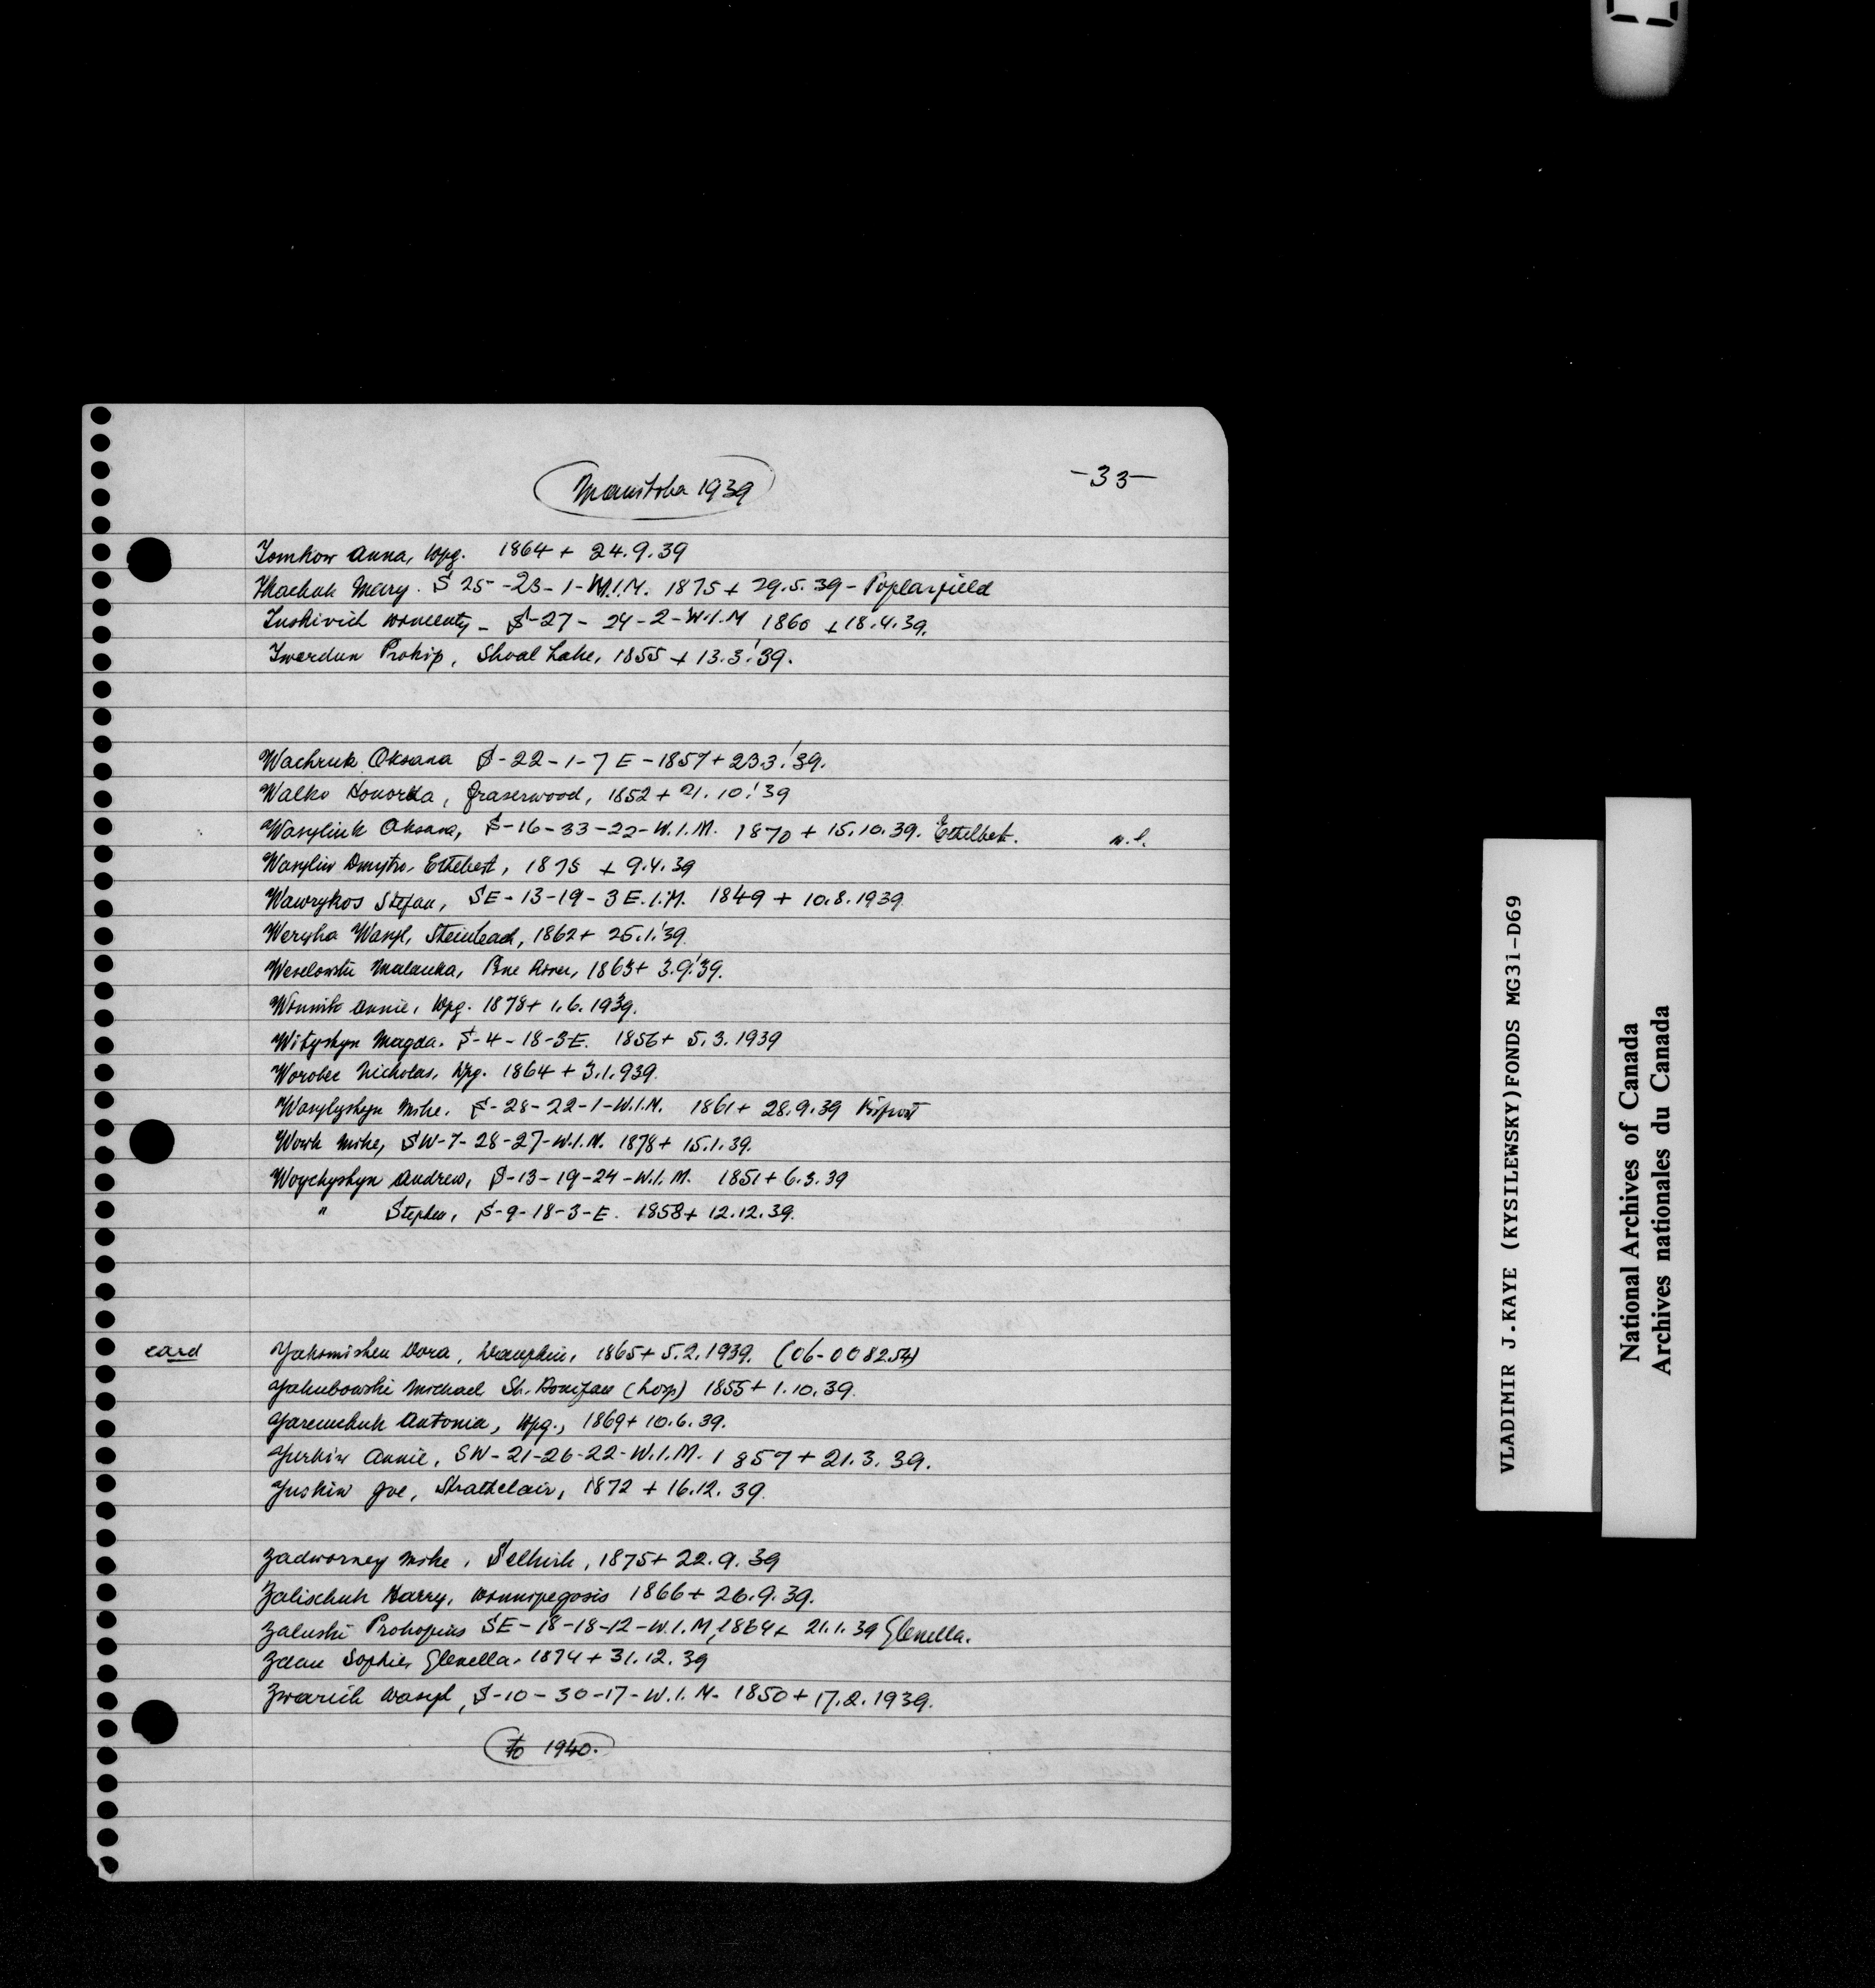 Manitoba 1939
-33-
Tomkow Anna, Wpg. 1864 + 24.9.39
Tkachuk Mary. S 25-23-1-W.1.M. 1875 + 29.5.39 - Poplarfield
Tuskivich Wincenty - S-27-24-2-W.1.M 1860 + 18.4.39.
Twerdun Prokip, Shoal Lake, 1855 + 13.3.'39.
Wachruk Oksana S-22-1-7 E-1857 + 23.3.'39.
Walko Honorka, Fraserwood, 1852 + 21.10.'39
Wasyliuk Oksana, S-16-33-22-W.1.M. 1870 + 15.10.39. Ethelbert. n.l.
Wasyliw Dmytro, Ethelbert, 1875 + 9.4.39
Wawrykos Stefan, SE-13-19-3 E.1.M. 1849 + 10.8.1939
Weryha Wasyl, Steinbach, 1862 + 25.1.'39.
Weselowski Malanka, Pine River, 1863 + 3.9.'39.
Winnik Annie, Wpg. 1878 + 1.6.1939.
Wityshyn Magda. S-4-18-3E. 1856 + 5.3.1939
Worobec Nicholas, Wpg. 1864 + 3.1.939.
Wasylyshyn Mike. S-28-22-1-W.1.M. 1861 + 28.9.39
Wowk Mike, SW-7-28-27-W.1.M. 1878 + 15.1.39.
Woychyshyn Andrew, S-13-19-24-W.1.M. 1851 + 6.3.39
" Stephen, S-9-18-3-E. 1858 + 12.12.39.
card Yakomishen Dora, Dauphin, 1865 + 5.2.1939. (06-008254)
Yakubowski Michael St. Boniface (Hosp) 1855 + 1.10.39.
Yaremchuk Antonia, Wpg., 1869 + 10.6.39.
Yurkiw Annie, SW-21-26-22-W.1.M. 1857 + 21.3.39.
Yuskiw Joe, Strathclair, 1872 + 16.12.39.
Zadworney Mike, Selkirk, 1875 + 22.9.39
Zalischuk Harry, Winnipegosis 1866 + 26.9.39.
Zaluski Prokopius SE-18-18-12-W.1.M, 1864 + 21.1.39 Glenella.
Zdan Sophie, Glenella. 1874 + 31.12.39
Zwarich Wasyl, S-10-30-17-W.1.M. 1850 + 17.2.1939.
to 1940.
VLADIMIR J.KAYE (KYSILEWSKY)FONDS MG31-D69
National Archives of Canada
Archives nationales du Canada